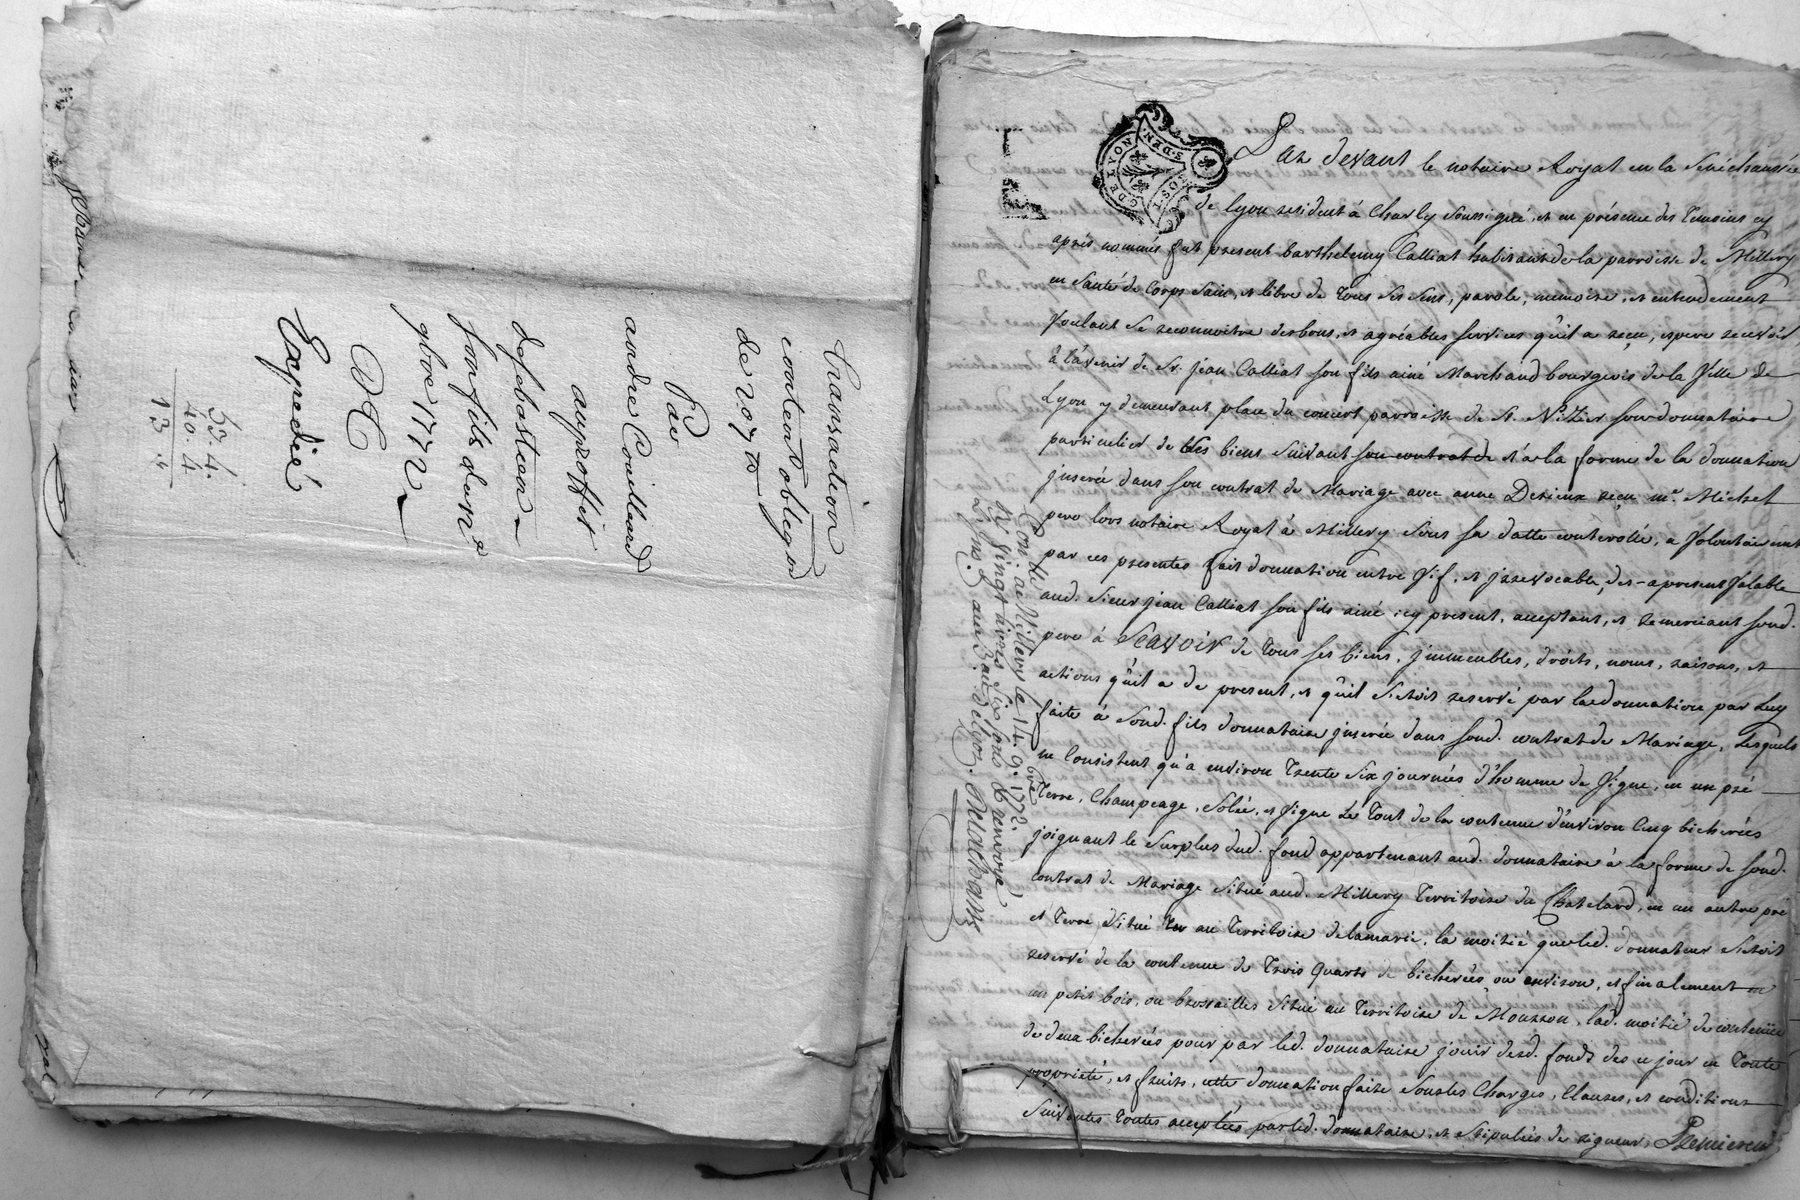 Transaction
contenant obligaon
de 207 tt
Par
andre Couilland
auproffit
de sebastien
son fils dem
9bre 1772
DC
Expedié
53. 4.
40. 4
13 "
G. DE LYON.
Par devant le notaire Royal en la Sénéchaussée
de Lyon resident à Charly soussigné, et en présence des temoins cy
après nommés fut present Barthelemy Calliat habitant de la parroisse de Millery
en santé de corps sain, et libre de tous ses sens, parole, memoire, et entendement
voulant se reconnoitre des bons, et agréables services qu'il a reçu, espere recevoir
à l'avenir de Sr. jean Calliat son fils ainé Marchand bourgeois de la Ville de
Lyon y demeurant place du concert parroisse de St Nizier son donnataire
particulier de ses biens suivant son contrat de et à la forme de la donnation
jnserée dans son contrat de Mariage avec anne Derieux reçu me. Michel
pere lors notaire Royal à Millery sous sa datte controllé, a volontairement
par ces presentes fait donnation entre vif, et jrrevocable, des-apresent valable
aud. sieur jean Calliat son fils ainé icy present, acceptant, et remerciant sond.
pere à SCAVOIR de tous ses biens, jmmeubles, droits, noms, raisons, et
actions qu'il a de present, et qu'il s'etoit reservé par lad donnation par luy
faite à sond. fils donnataire jnserée dans sond. contrat de Mariage, lesquels
ne consistent qu'a environ trente six journées d'homme de vigne, en un pré
terre, champeage, et vigne le tout de la contenue d'environ cinq bicherées
joignant le surplus dud. fond appartenant aud. donnataire à la forme de sond.
contrat de Mariage situé aud. Millery territoire du Chatelard, en un autre pré
et terre situé au territoire de la marie, la moitié que led. donnateur s'etoit
reservé de la contenue de trois quarts de bicherées ou environ, et finalement en
un petit bois, ou brossailles situé au territoire de Mourron, lad. moitié de contenüe
de deux bicherées pour par led. donnataire jouir desd. fonds des ce jour en toute
propriété, et fruits, cette donnation faite sous les charges, clauses, et conditions
suivantes toutes acceptées par led. donnataire, et stipulées de rigueur, Premierem
Con.lé a Millery le 14. 9bre 1772
R/ vingt trois six sons & renvoyé
au Bau. de Lyon. Delabans